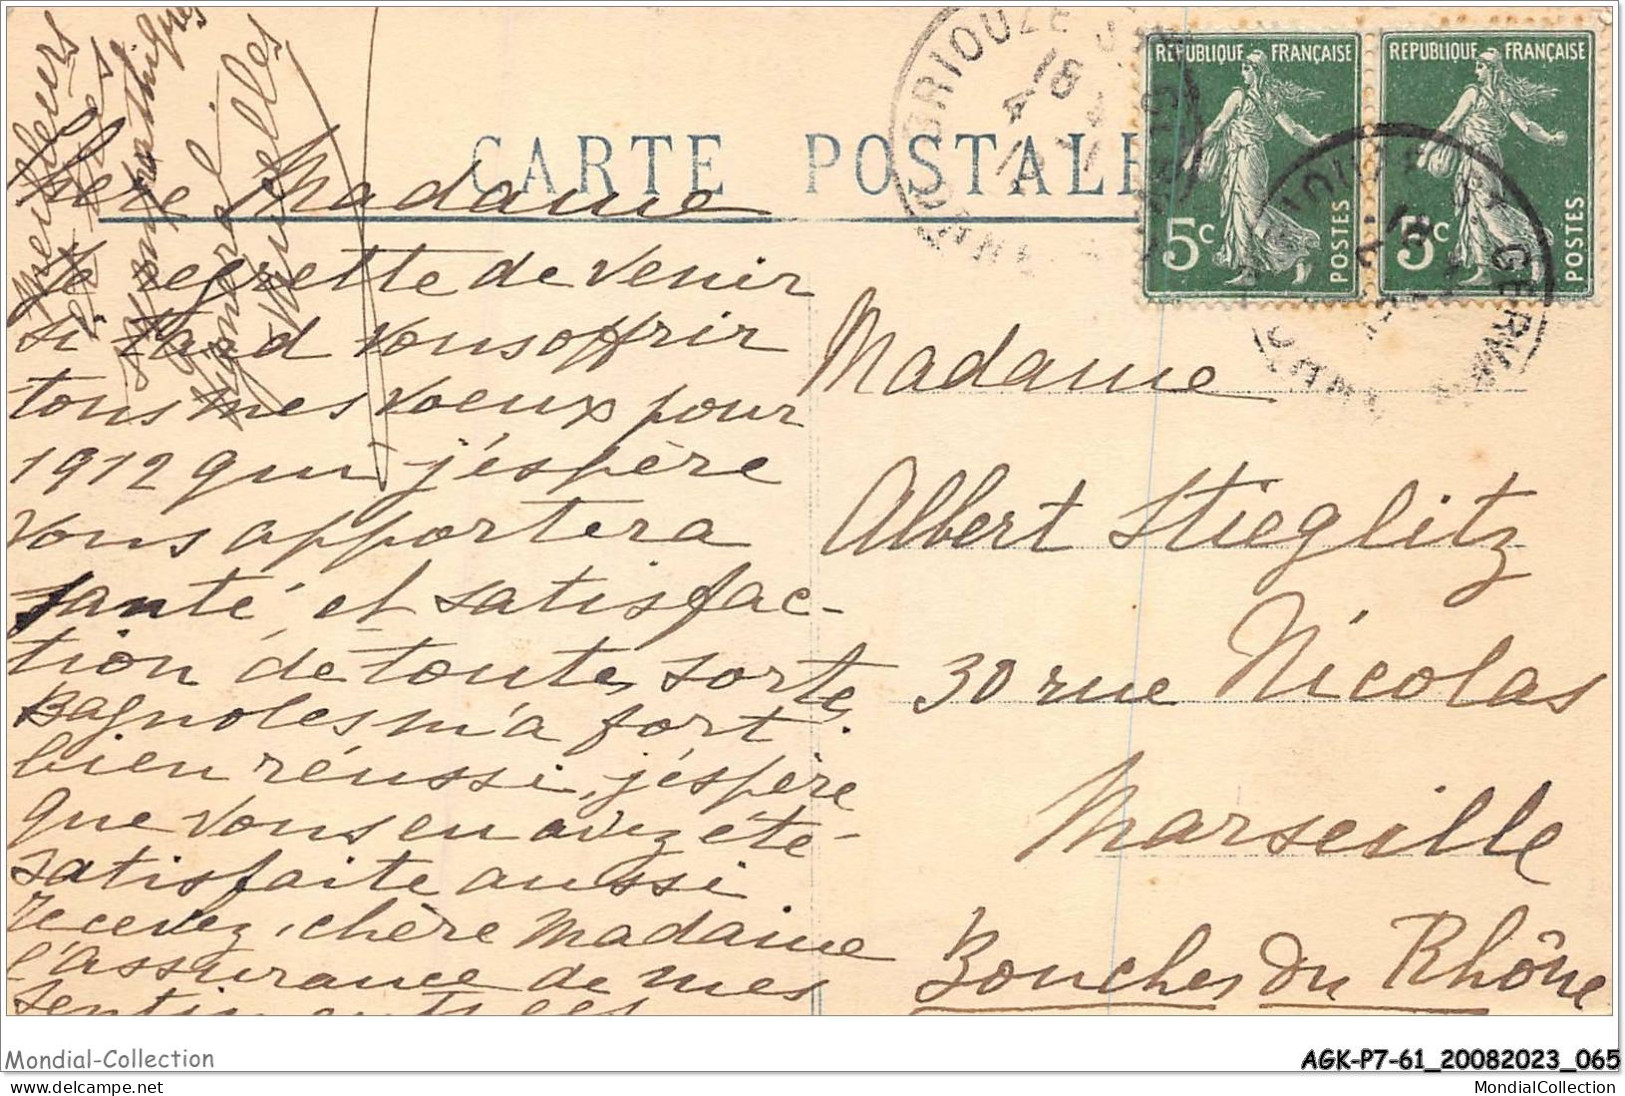 CARTE POSTALE
RÉPUBLIQUE FRANÇAISE
5c
POSTES
RÉPUBLIQUE FRANÇAISE
5c
POSTES
BRIOUZE
Chère Madame
Je regrette de venir
si tard vous offrir
tous mes voeux pour
1912 qui j'éspère
vous apportera
santé, et satisfac-
tion de toute sorte.
Bagnoles m'a fort
bien réussi, j'éspère
que vous en avez été
satisfaite aussi
recevez, chère Madame
l'assurance de mes
sentiments les
meilleurs
et très
sympathiques
Madame
Albert Stieglitz
30 rue Nicolas
Marseille
Bouches du Rhône
Mondial-Collection
AGK-P7-61_20082023_065
MondialCollection